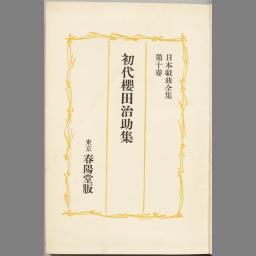 日本戯曲全集
第十卷
初代櫻田治助集
東京 春陽堂版